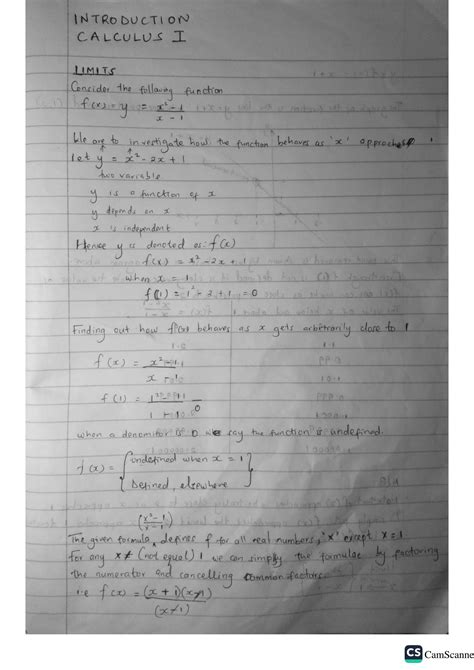 INTRODUCTION
CALCULUS I
LIMITS
Consider the following function
f(x) = y = x² - 1
x - 1
We are to investigate how the function behaves as 'x' approaches 1
let y = x² - 2x + 1
two variable
y is a function of x
y depends on x
x is independent
Hence y is denoted as: f(x)
f(x) = x² - 2x + 1
when x = 1
f(1) = 1² - 2 + 1 = 0
Finding out how f(x) behaves as x gets arbitrarily close to 1
f(x) = x² - 1
x - 1
f(1) =
0
when a denomitor is 0 we say the function is undefined.
f(x) = { undefined when x = 1
Defined, elsewhere }
(x² - 1)
(x - 1)
The given formula, defines f for all real numbers, 'x' except x = 1
For any x ≠ (not equal) 1 we can simply the formulae by factoring
the numerator and cancelling common factors.
i.e f(x) = (x + 1)(x - 1)
(x - 1)
CS CamScanne